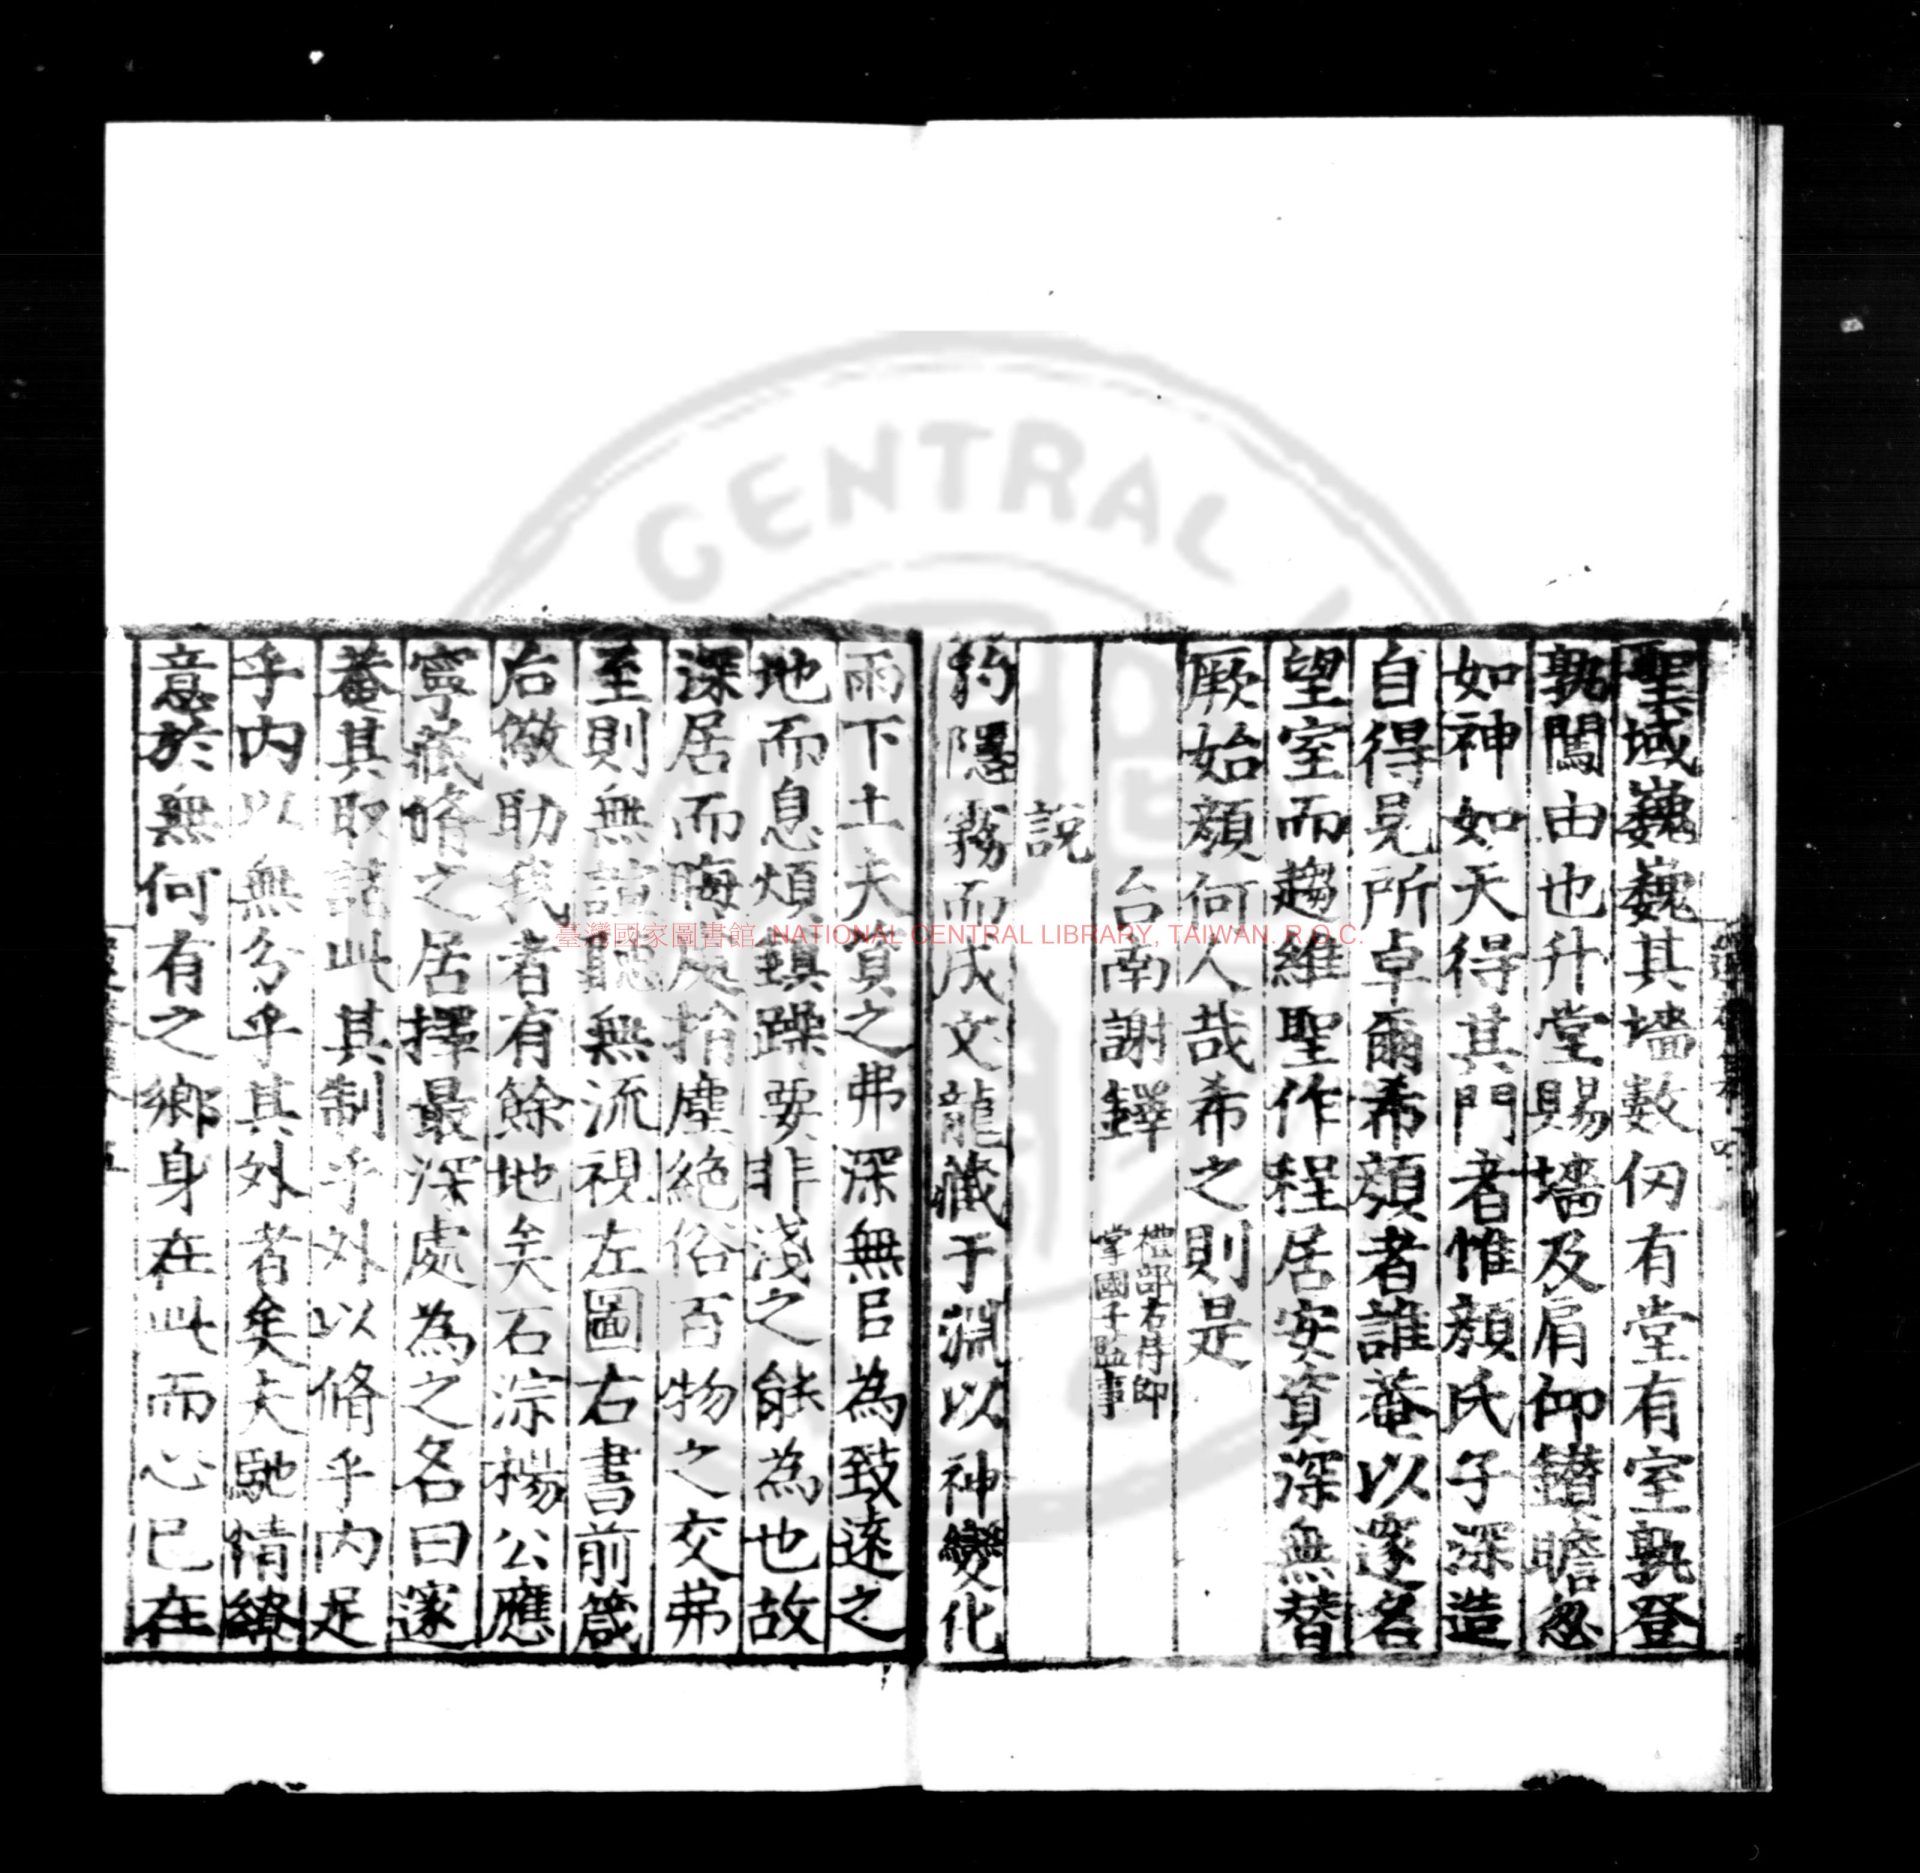 聖域巍巍其墻數仞有堂有室孰登
孰闖由也升堂賜墻及肩仰鑚瞻忽
如神如天得其門者惟顏氏子深造
自得見所卓爾希顏者誰菴以邃名
望室而趨維聖作程居安資深無替
厥始顏何人哉希之則是
台南謝鐸禮部右侍郎
掌國子監事
說
豹隱霧而成文龍藏于淵以神變化
雨下土夫資之弗深無㠯為致遠之
地而息煩鎮躁要非淺之能為也故
深居而晦處捐塵絕俗百物之交弗
至則無讙聽無流視左圖右書前箴
后儆助我者有餘地矣石淙楊公應
寧藏脩之居擇最深處為之名曰邃
菴其取諸此其制乎外以脩乎內足
乎內以無分乎其外者矣夫馳情繚
意於無何有之鄉身在此而心已在
臺灣國家圖書館, NATIONAL CENTRAL LIBRARY, TAIWAN. R.O.C.
CENTRAL L